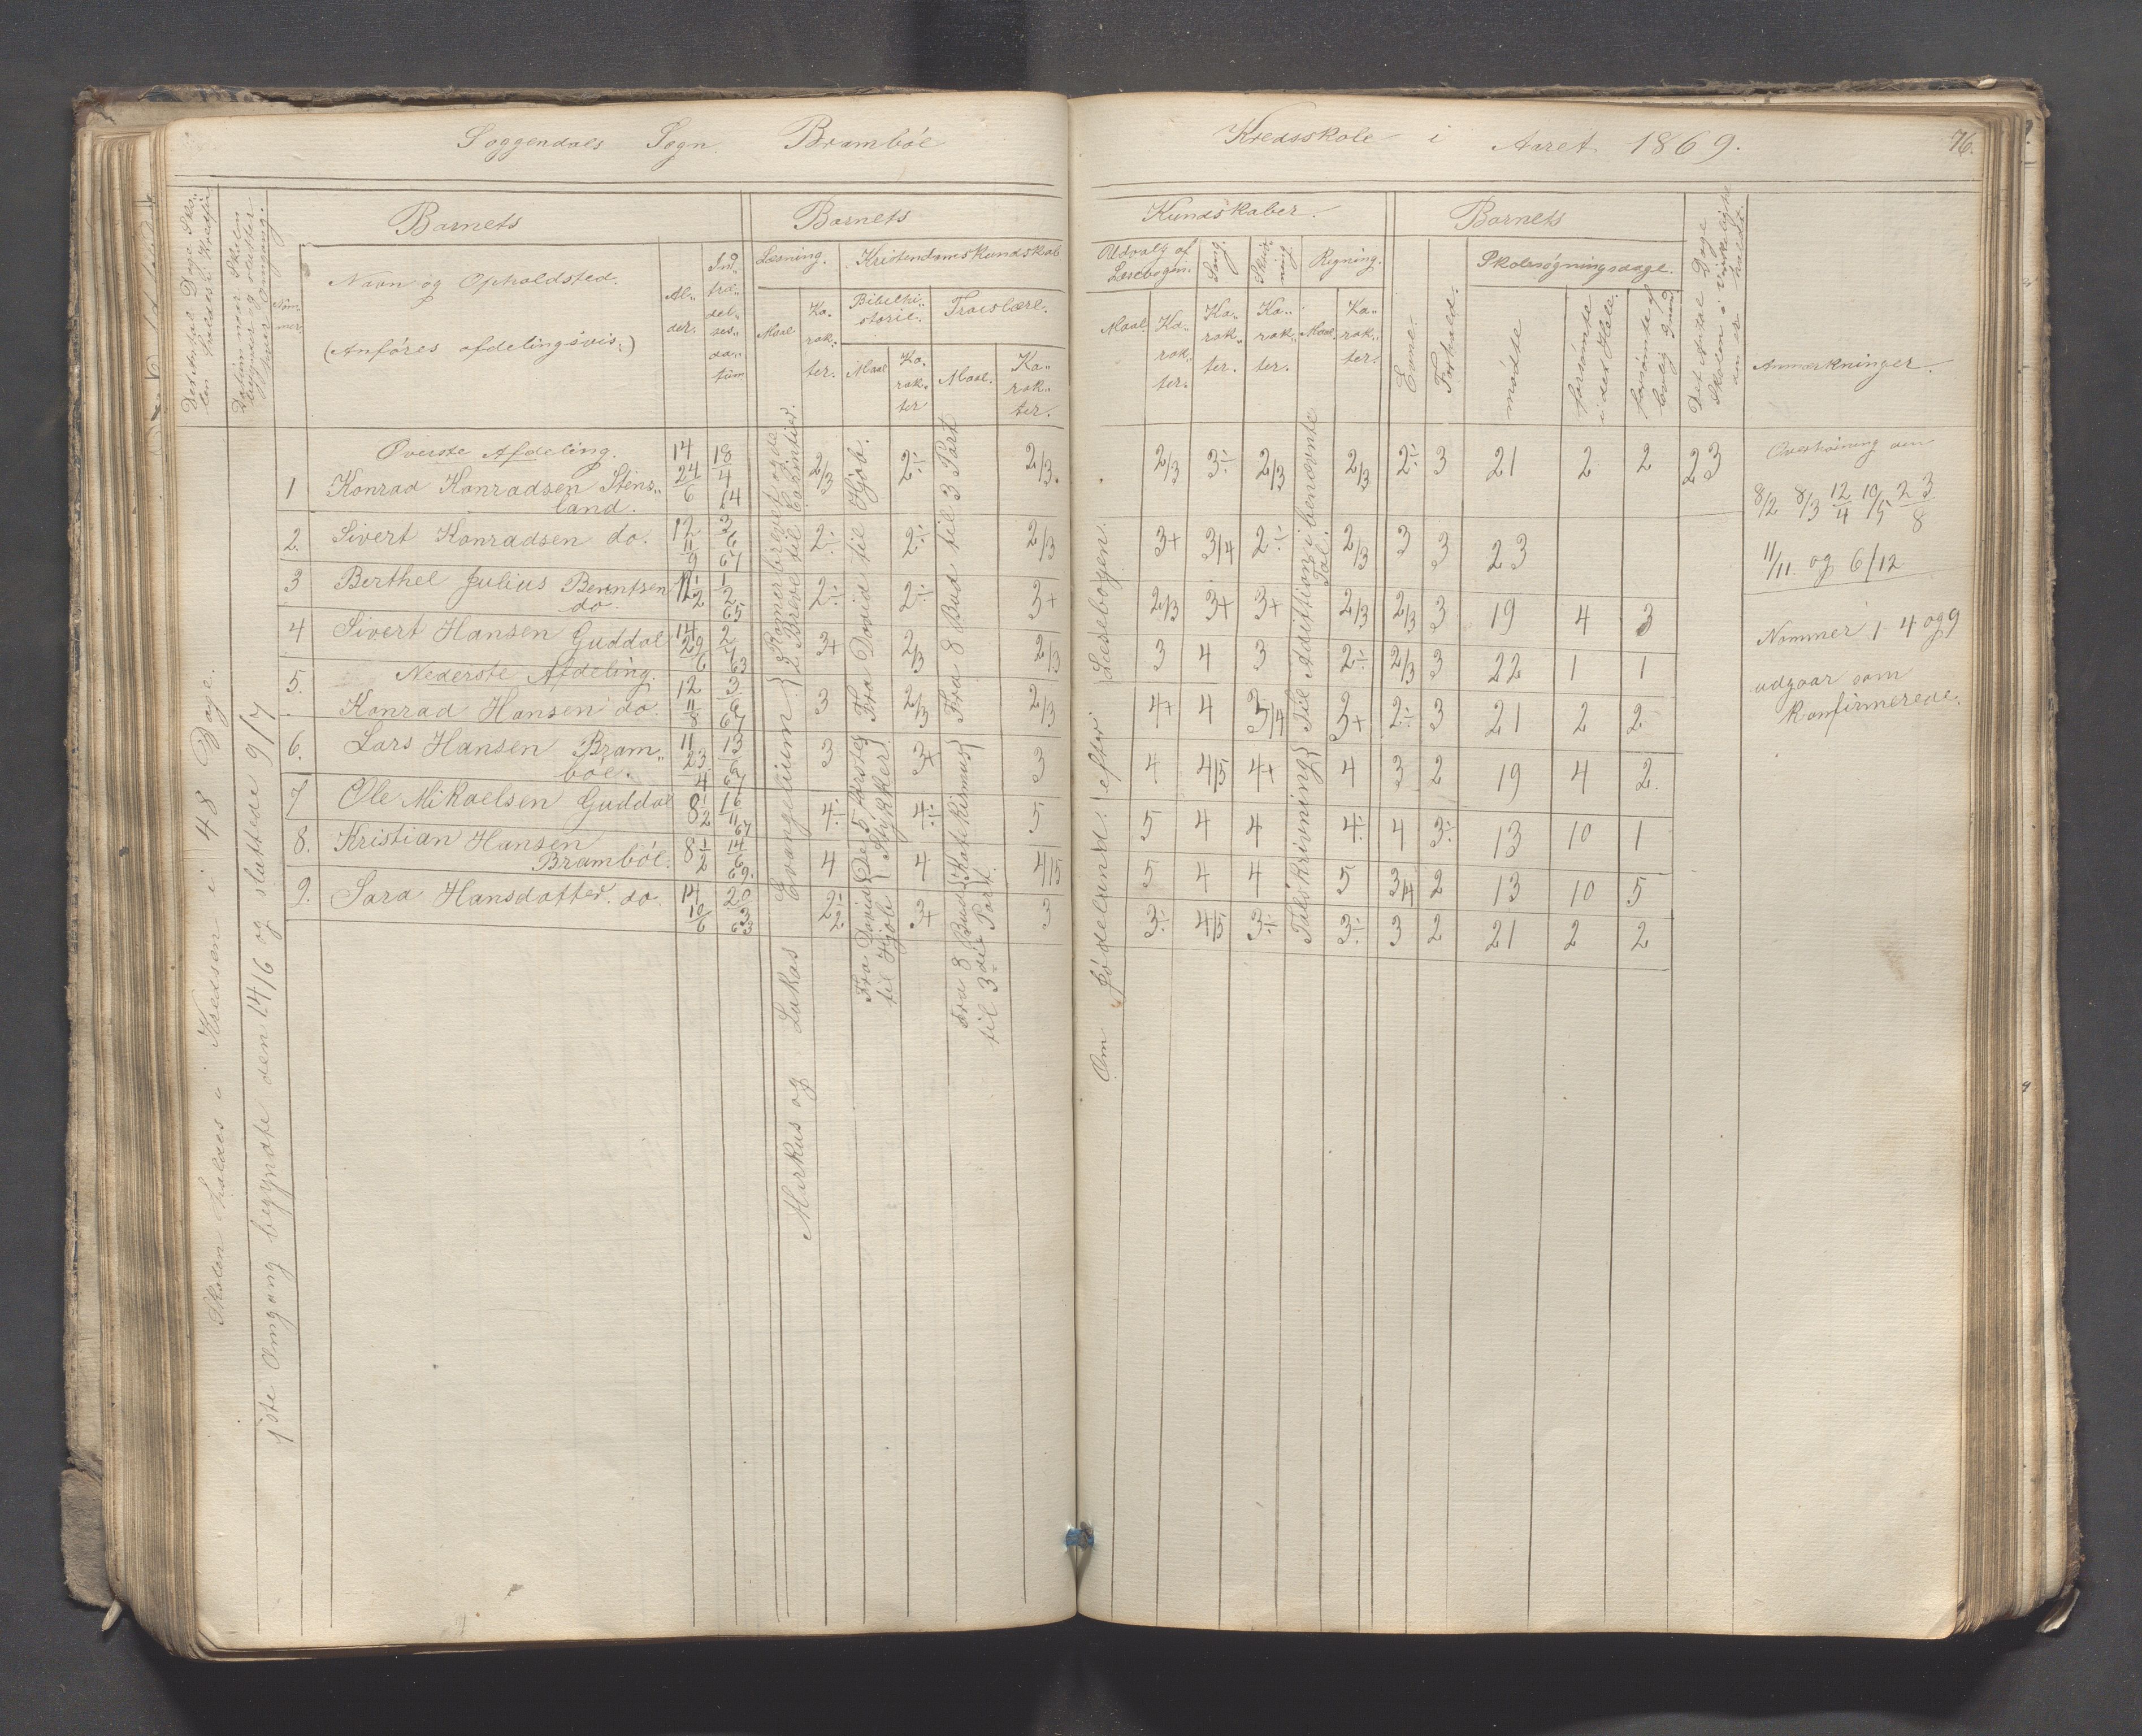 Soggendals Sogn. Bramböl Kredsskole i Aaret 1869. 76.
Det Antal Dage Skolen holdes i Kredsen
Datum naar Skolen begynder og slutter hver Omgang.
Nommer
Barnets
Navn og Opholdsted.
(Anføres afdelingsvis:)
Alder.
Indtrædelsesdatum
Barnets Kundskaber.
Læsning.
Maal
Karakter.
Kristendomskundskab
Bibelhistorie.
Maal
Karakter
Troeslære.
Maal.
Karakter.
Udvalg af Læsebogen.
Maal
Karakter.
Sang.
Karakter.
Skrivning.
Karakter.
Regning.
Maal.
Karakter.
Barnets
Evne.
Forhold.
Skolesøgningsdage.
mødte
forsømte i det Hele.
forsømte af lovlig Grund.
Det Antal Dage Skolen i Virkeligheden er holdt.
Anmærkninger.
Øverste Afdeling.
1 Konrad Konradsen Stensland. 14 24/6 18/4 64 2/3 2÷ 2/3. 2/3 3÷ 2/3 2/3 2÷ 3 21 2 2 23
2. Sivert Konradsen do. 12 11/9 3/6 67 2÷ 2÷ 2/3 3+ 3/4 2÷ 2/3 3 3 23
3 Berthel Julius Berntsen do. 12 1/2 1/2 65 2÷ 2÷ 3+ 2/3 3+ 3+ 2/3 2/3 3 19 4 3
4 Sivert Hansen Guddal 14 29/6 2/7 63 3+ 2/3 2/3 3 4 3 2÷ 2/3 3 22 1 1
Nederste Afdeling.
5. Konrad Hansen do. 12 3/6 67 3 2/3 2/3 4+ 4 3/4 3+ 2÷ 3 21 2 2
6. Lars Hansen Bramböl. 11 23/4 13/6 67 3 3+ 3 4 4/5 4+ 4 3 2 19 4 2.
7 Ole Mikaelsen Guddal 8 1/2 16/11 67 4÷ 4÷ 5 5 4 4 4÷ 4 3÷ 13 10 1
8. Kristian Hansen Bramböl. 8 1/2 14/6 69. 4 4 4/5 5 4 4 5 3/4 2 13 10 5
9. Sara Hansdotter. do. 14 10/6 20/3 63 2÷ 3+ 3 3÷ 4/5 3÷ 3÷ 3 2 21 2 2
Skolen holdes i Kredsen i 48 Dage.
1ste Omgang begyndte den 14/6 og sluttede 9/7
Markus og Lukas Evangelium } Romerbrevet og de 2 Breve til
Fra David til Hjob. De 5 første Stykker
Fra David til Hjob. Fra David til Hjob
Fra 8 Bud til 3 Part
Fra 3 Bud til 3die Part. Katekismus
Om Fødeland. efter Læsebogen.
Talskrivning } Til Addition i benævnte Tal.
8/2 8/3 12/4 10/5 2 3/8
11/11. og 6/12
Nommer 1. 4 og 9
udgaar som
Konfirmerede.